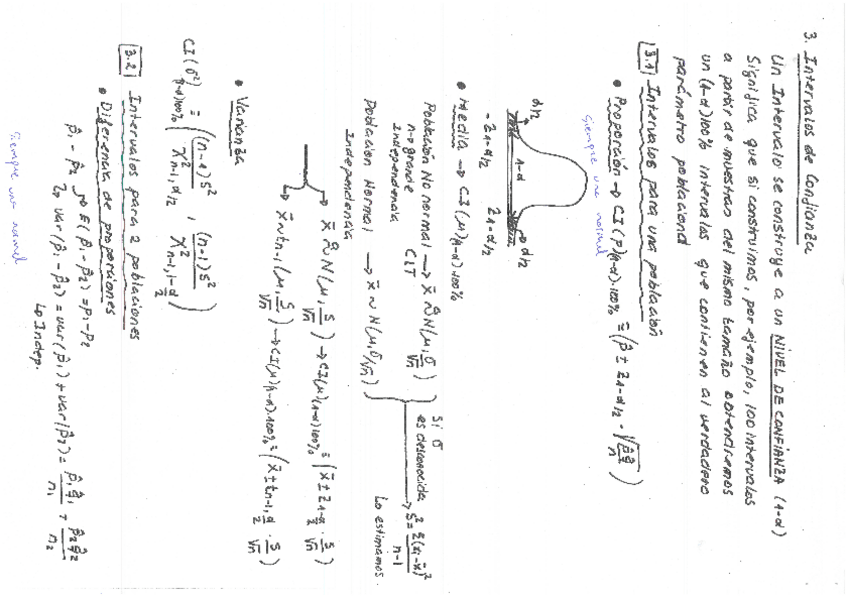 3. Intervalos de Confianza
Un Intervalo se construye a un NIVEL DE CONFIANZA (1-α)
Significa que si construimos, por ejemplo, 100 intervalos
a partir de muestras del mismo tamaño obtendremos
un (1-α)100% intervalos que contienen al verdadero
parámetro poblacional
3.1 Intervalos para una población
• Proporción → CI(P)(1-α)·100% ≡ (p̂ ± Z1-α/2 · √(p̂q̂/n))
siempre una normal
α/2 1-α α/2
-Z1-α/2 Z1-α/2
• Media → CI(μ)(1-α)·100%
Población No normal → x̄ ≈ N(μ, σ/√n)
n → grande CLT
Independencia
Población Normal → x̄ ~ N(μ, σ/√n)
Independencia
Si σ
es desconocida
→ S² = Σ(xi-x̄)²/n-1
Lo estimamos.
→ x̄ ≈ N(μ, S/√n) → CI(μ)(1-α)100% ≡ (x̄ ± Z1-α/2 · S/√n)
→ x̄ ~ tn-1(μ, S/√n) → CI(μ)(1-α)·100% ≡ (x̄ ± tn-1,α/2 · S/√n)
• Varianza
CI(σ²)(1-α)100% ≡ ((n-1)S²/χ²n-1,α/2 , (n-1)S²/χ²n-1,1-α/2)
3.2 Intervalos para 2 poblaciones
• Diferencia de proporciones
p̂1 - p̂2 → E(p̂1 - p̂2) = p1 - p2
→ Var(p̂1 - p̂2) = Var(p̂1) + Var(p̂2) = p̂1q̂1/n1 + p̂2q̂2/n2
↳ Indep.
siempre una normal